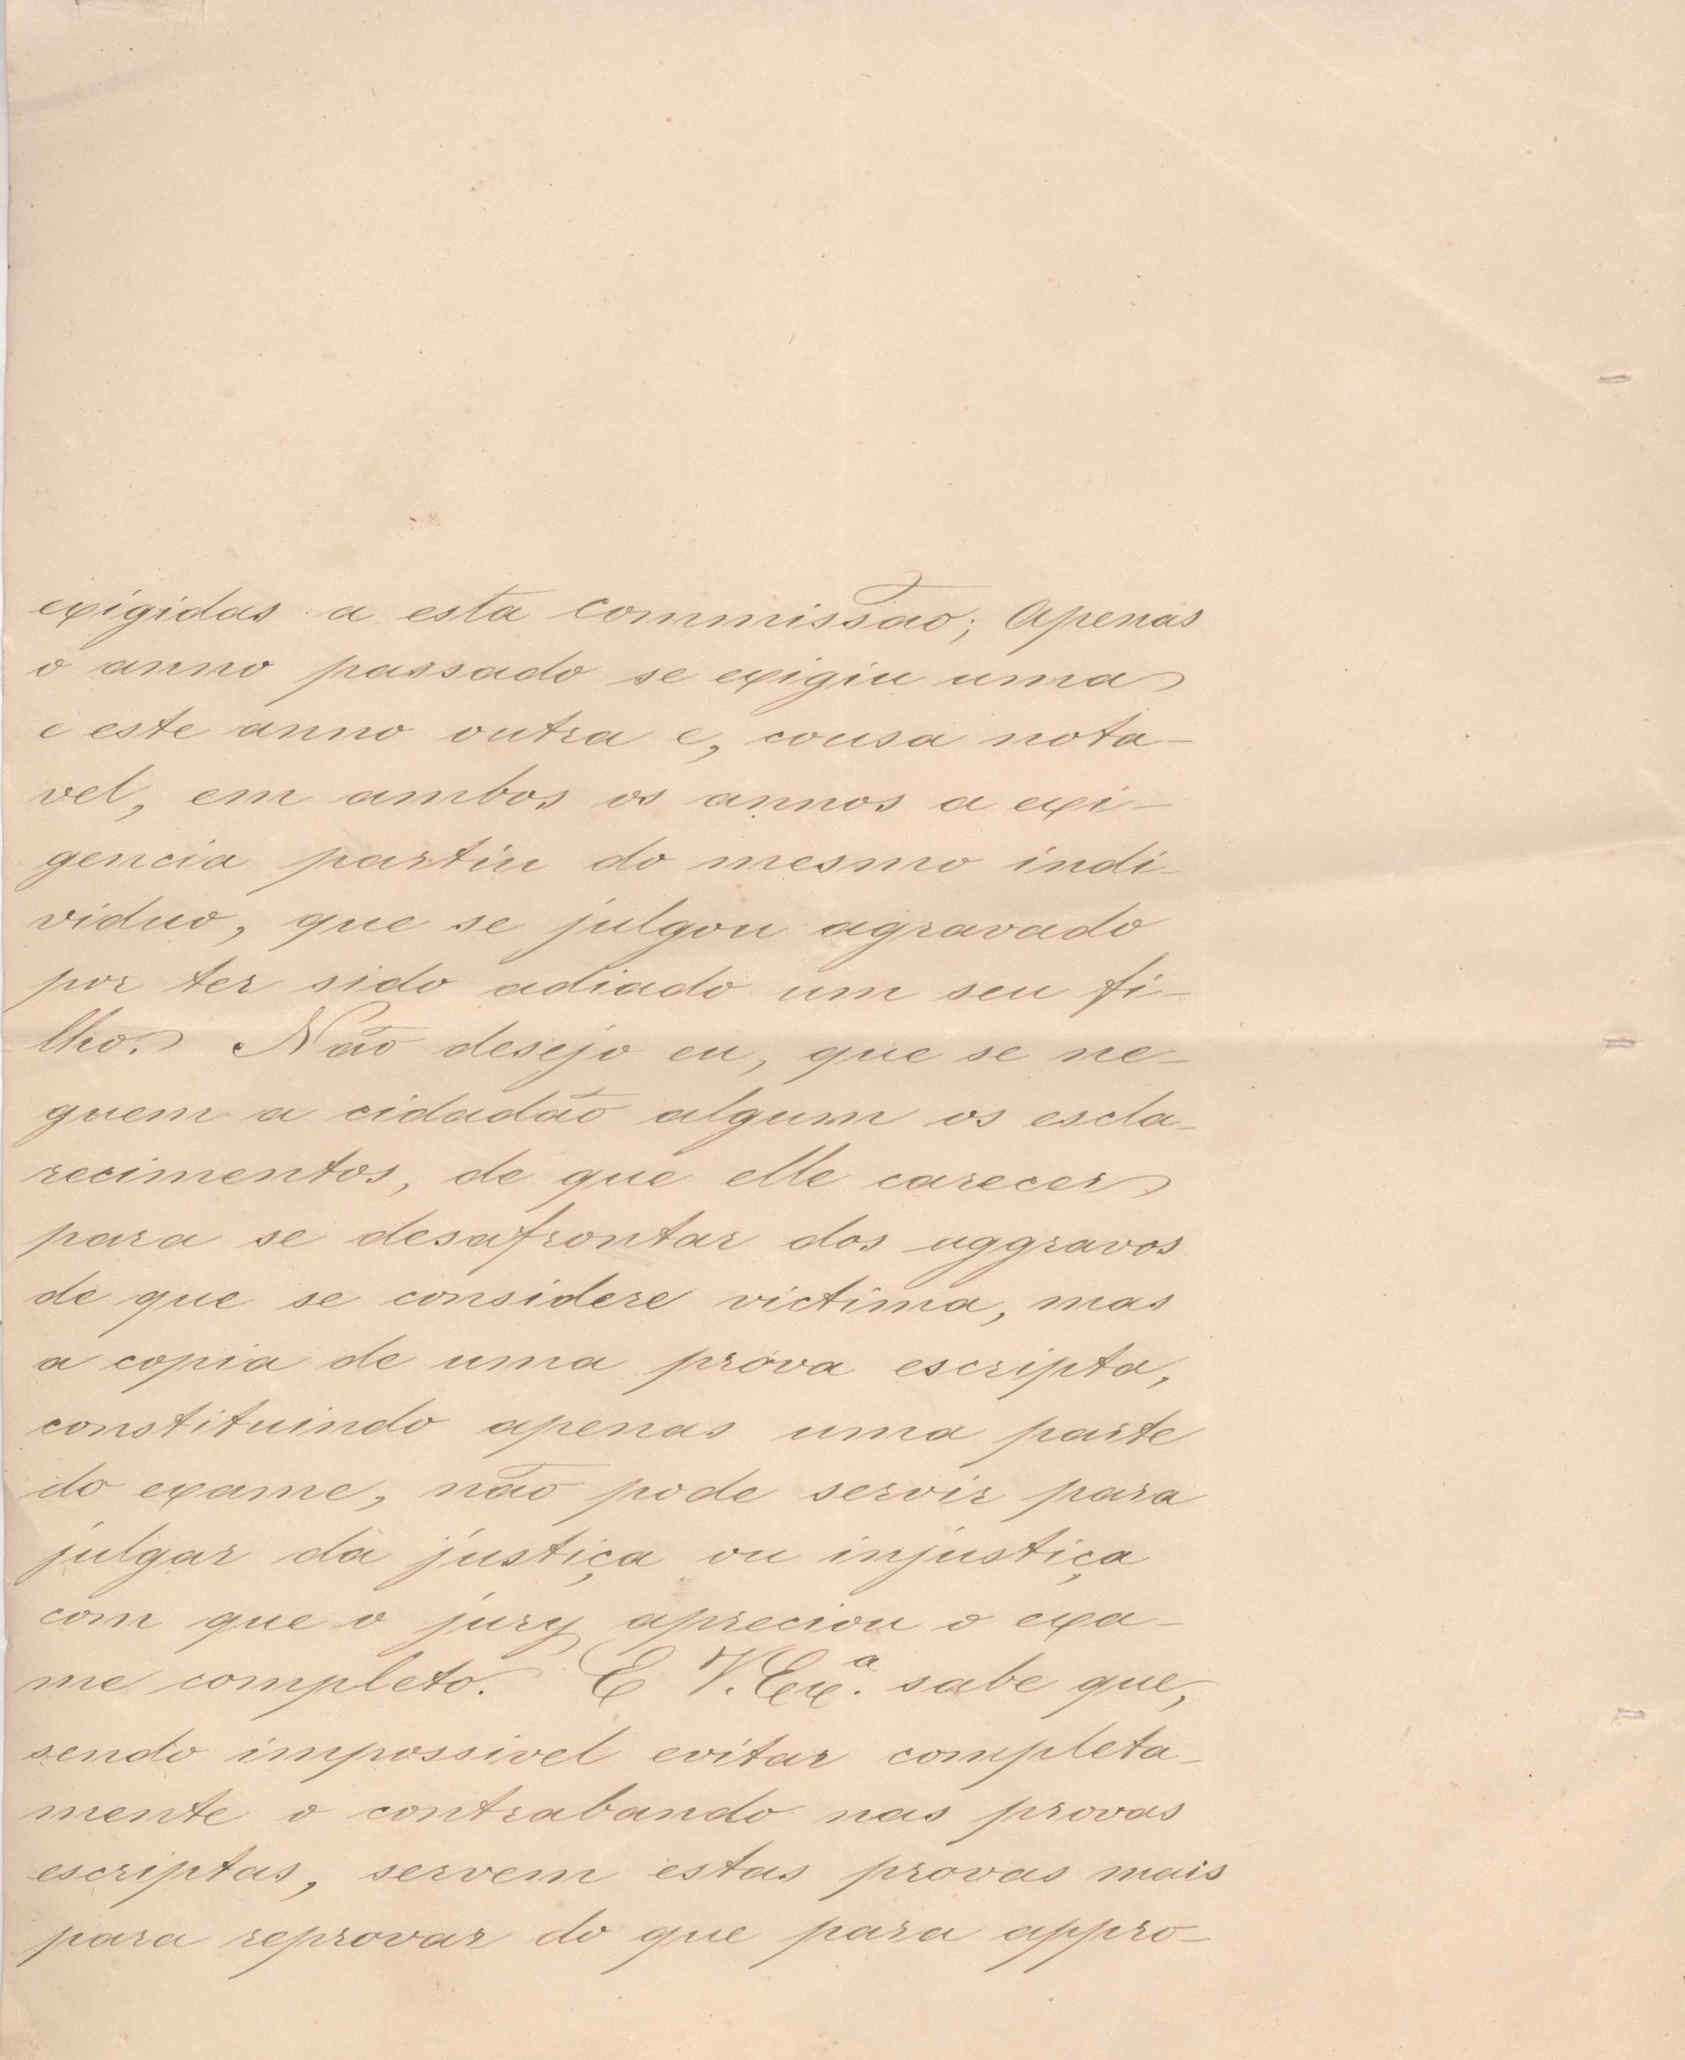 exigidas a esta commissão; Apenas
o anno passado se exigiu uma
e este anno outra e, cousa nota-
vel, em ambos os annos a exi-
gencia partiu do mesmo indi-
viduo, que se julgou agravado
por ter sido adiado um seu fi-
lho. Não desejo eu, que se ne-
guem a cidadão algum os escla-
recimentos, de que elle carecer
para se desafrontar dos aggravos
de que se considere victima, mas
a copia de uma prova escripta,
constituindo apenas uma parte
do exame, não pode servir para
julgar da justiça ou injustiça
com que o jury apreciou o exa-
me completo. E V. Exª. sabe que,
sendo impossivel evitar completa-
mente o contrabando nas provas
escriptas, servem estas provas mais
para reprovar do que para appro-